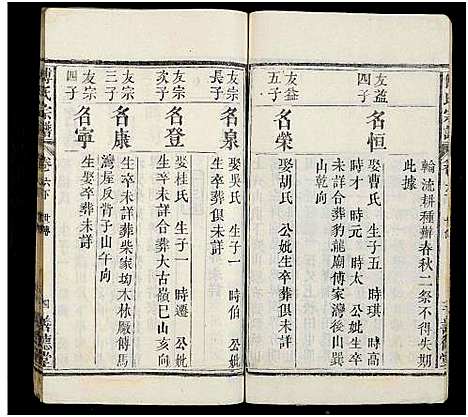 輪流耕種辦春秋二祭不得失期
此據
友益
四子
名恒
娶曹氏 生子五 時琪 時高
時才 時元 時太 公妣生卒
未詳合葬豹龍廟傅家灣後山巽
山乾向
友益
五子
名榮
娶胡氏 公妣生卒葬俱未詳
友宗
長子
名泉
娶吳氏 生子一 時伯 公妣
生卒葬俱未詳
友宗
次子
名登
娶桂氏 生子一 時遷 公妣
生卒未詳合葬大古嶺巳山亥向
友宗
三子
名康
生卒未詳葬柴家坳木林廠傅馬
灣屋反背子山午向
友宗
四子
名寧
生娶卒葬未詳
傅氏宗譜
卷六下
世傳
四
善德堂